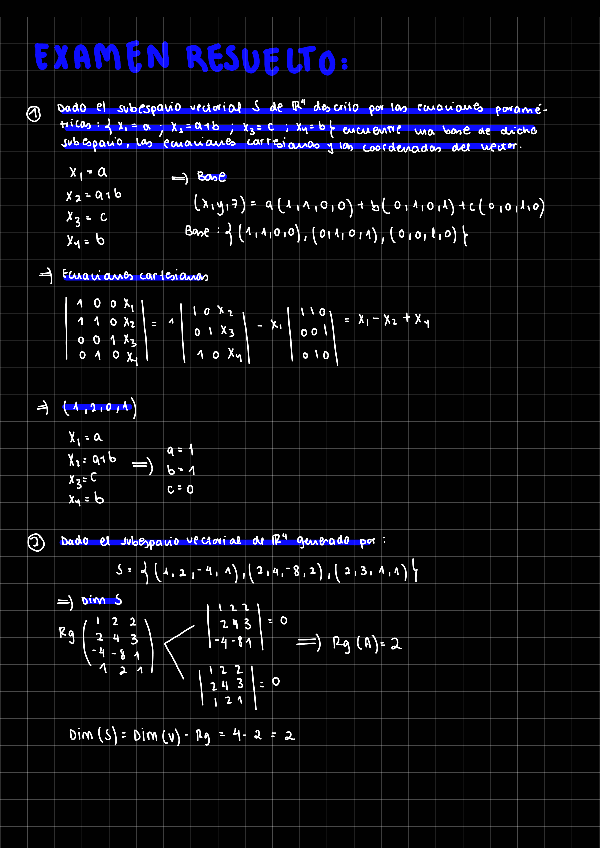 EXAMEN RESUELTO:
① Dado el subespacio vectorial S de ℝ⁴ descrito por las ecuaciones paramé-
tricas: { x₁ = a ; x₂ = a+b ; x₃ = c ; x₄ = b } encuentre una base de dicho
subespacio, las ecuaciones cartesianas y las coordenadas del vector.
x₁ = a
x₂ = a+b
x₃ = c
x₄ = b
⇒) Base
(x,y,z) = a(1,1,0,0) + b(0,1,0,1) + c(0,0,1,0)
Base: {(1,1,0,0), (0,1,0,1), (0,0,1,0)}
⇒) Ecuaciones cartesianas
|1 0 0 x₁|
|1 1 0 x₂| = 1 |1 0 x₂| - x₁ |1 1 0| = x₁ - x₂ + x₄
|0 0 1 x₃| |0 1 x₃| |0 0 1|
|0 1 0 x₄| |1 0 x₄| |0 1 0|
⇒) (1,2,0,1)
x₁ = a
x₂ = a+b ⇒)
x₃ = c
x₄ = b
a = 1
b = 1
c = 0
② Dado el subespacio vectorial de ℝ⁴ generado por:
S = {(1,2,-4,1), (2,4,-8,2), (2,3,1,1)}
⇒) Dim S
Rg
(1 2 2)
(2 4 3)
(-4 -8 1)
(1 2 1)
|1 2 2|
|2 4 3| = 0
|-4 -8 1|
|1 2 2|
|2 4 3| = 0
|1 2 1|
⇒) Rg (A) = 2
Dim (S) = Dim (V) - Rg = 4 - 2 = 2